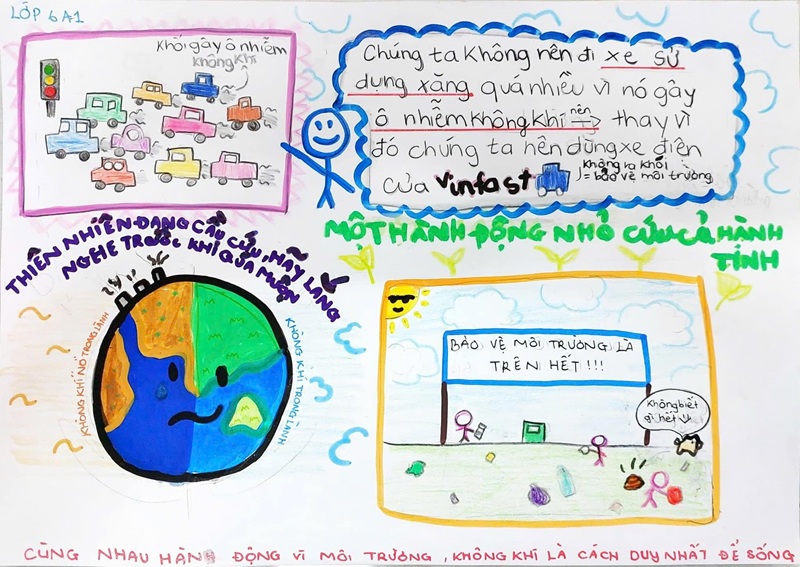 LỚP 6A1
Khói gây ô nhiễm
không khí
Chúng ta Không nên đi xe sử
dụng xăng quá nhiều vì nó gây
ô nhiễm không khí nên → thay vì
đó chúng ta nên dùng xe điện
của vinfast
không ra khói
= bảo vệ môi trường
THIÊN NHIÊN ĐANG CẦU CỨU, HÃY LẮNG
NGHE TRƯỚC KHI QUÁ MUỘN
MỘT HÀNH ĐỘNG NHỎ CỨU CẢ HÀNH
TINH
KHÔNG KHÍ NO TRONG LÀNH
KHÔNG KHÍ TRONG LÀNH
BẢO VỆ MÔI TRƯỜNG LÀ
TRÊN HẾT !!!
Không biết
gì hết
CÙNG NHAU HÀNH ĐỘNG VÌ MÔI TRƯỜNG, KHÔNG KHÍ LÀ CÁCH DUY NHẤT ĐỂ SỐNG